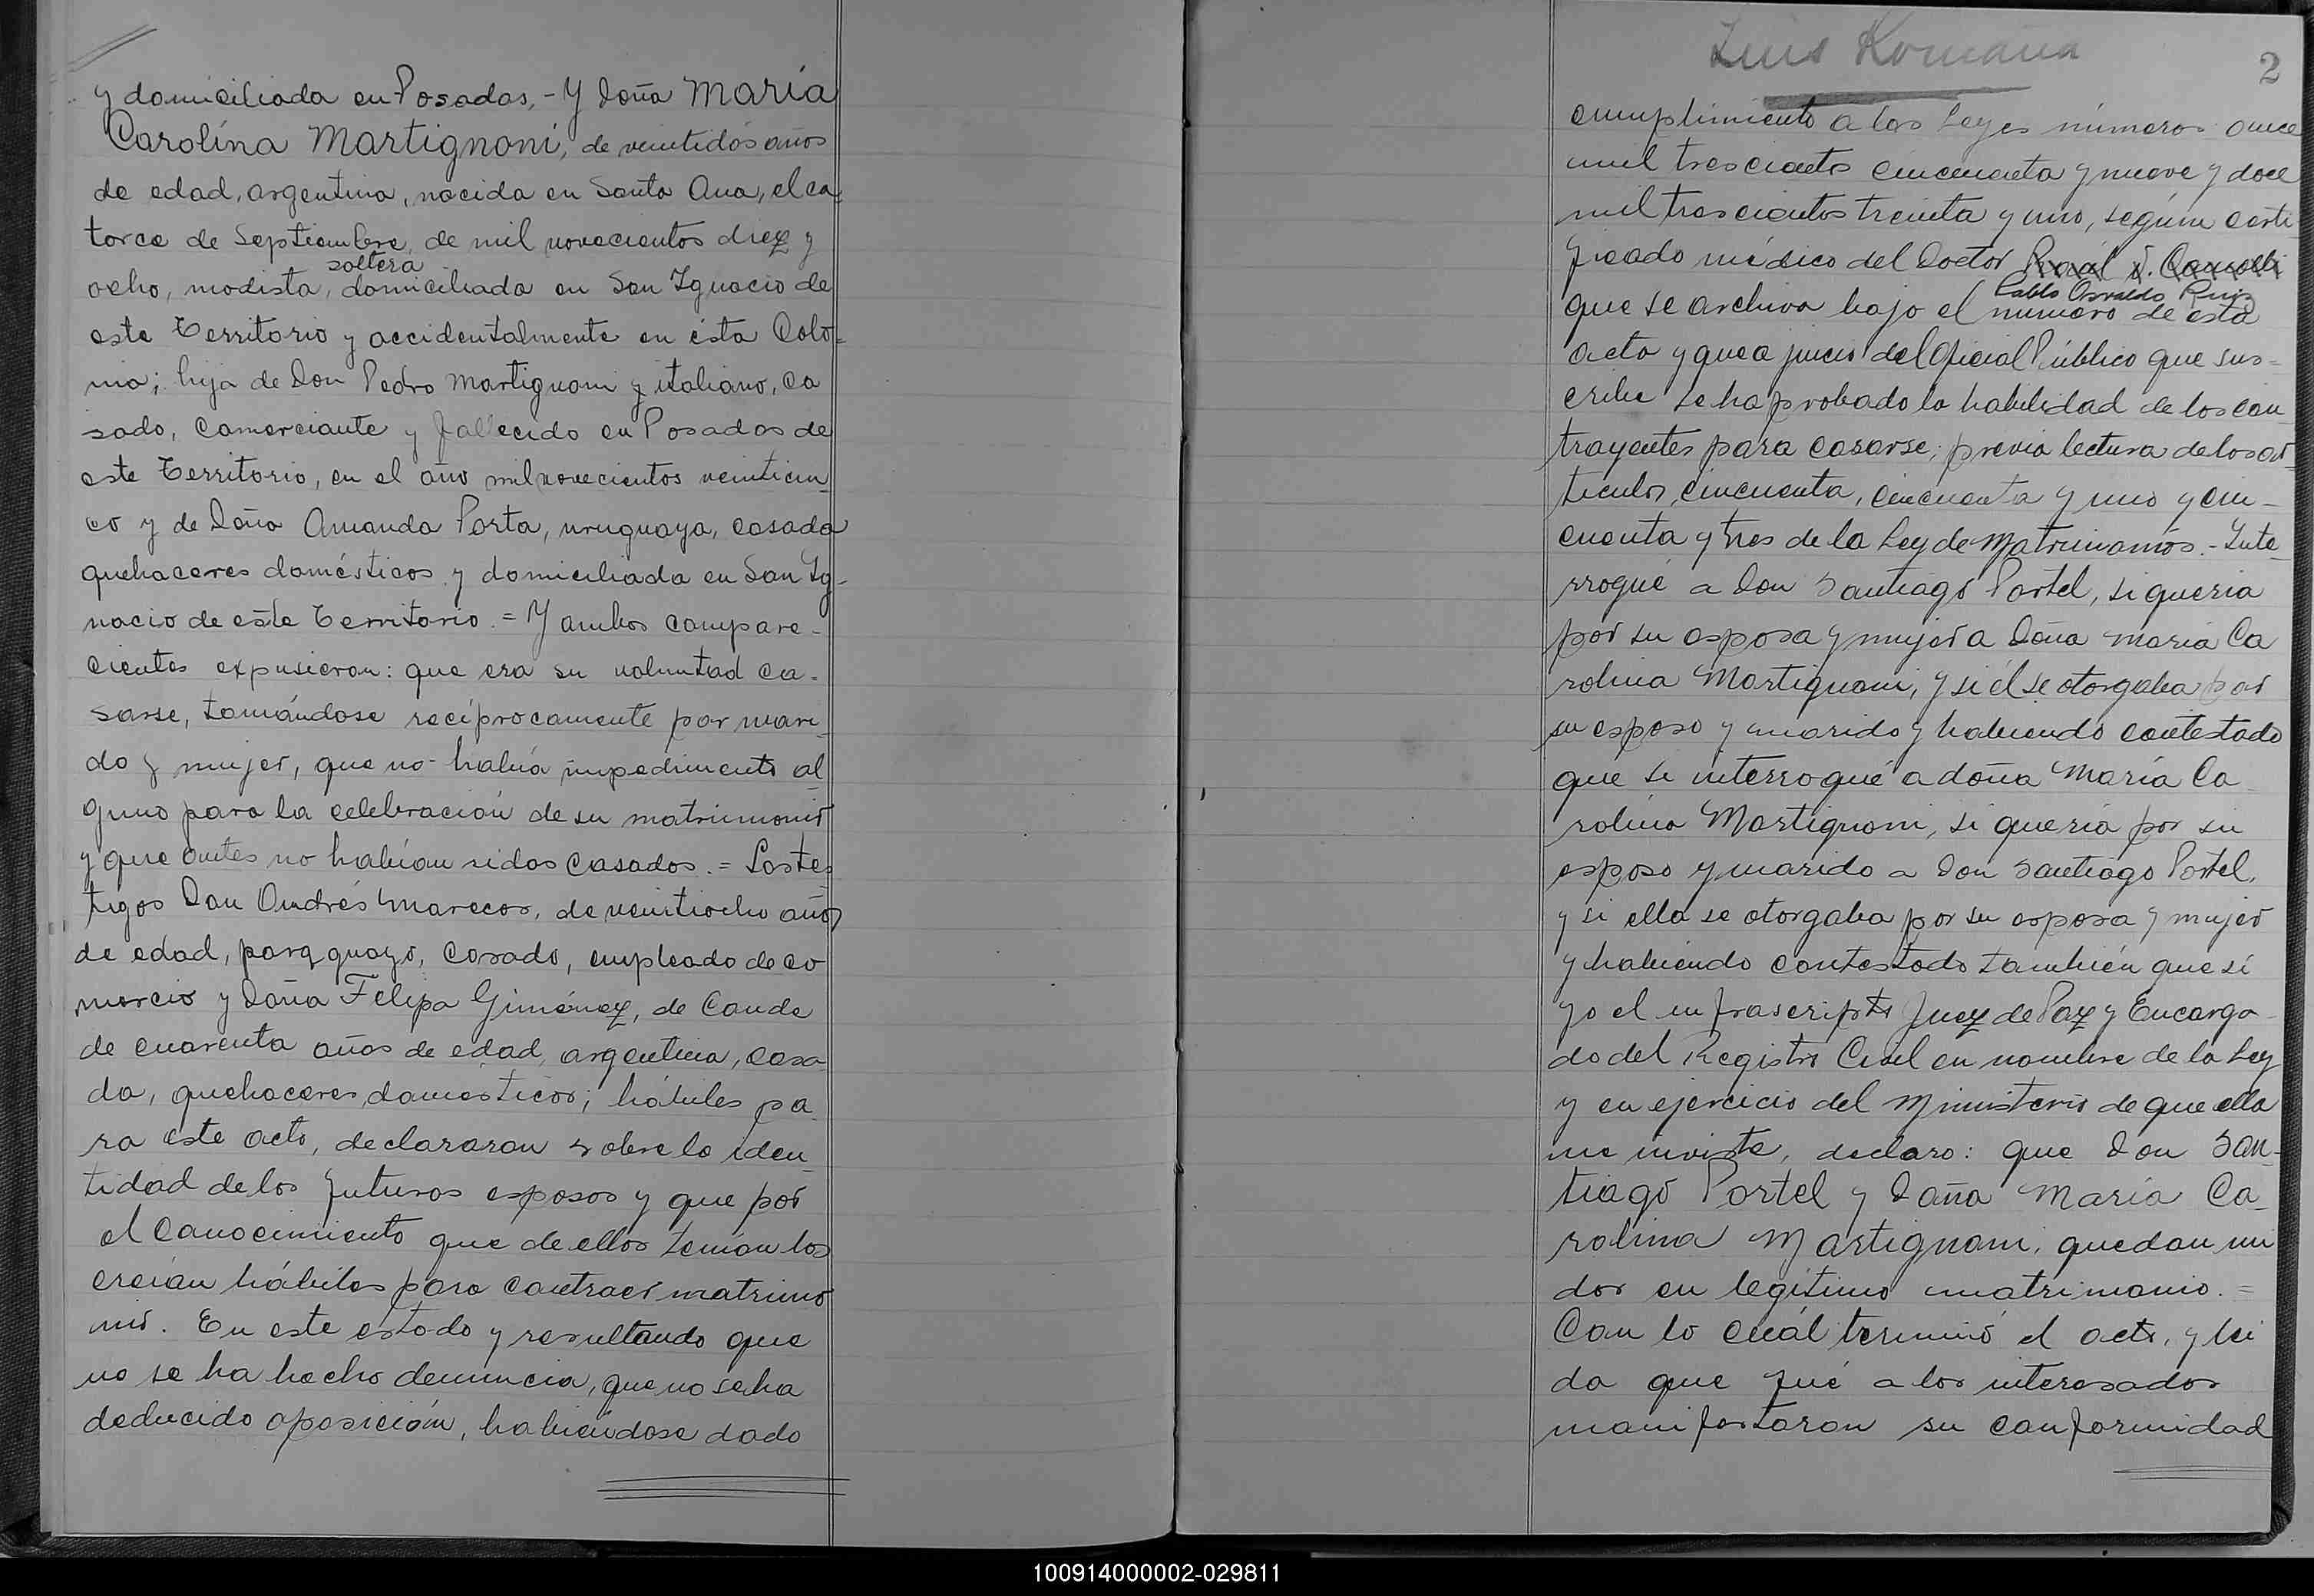 y domiciliada en Posadas,- Y Doña María
Carolina Martignoni, de veintidós años
de edad, argentina, nacida en Santa Ana, el ca
torce de Septiembre, de mil novecientos diez y
soltera
ocho, modista, domiciliada en San Ignacio de
este Territorio y accidentalmente en ésta Colo=
nia; hija de Don Pedro Martignoni y italiano, ca
sado, Comerciante y fallecido en Posadas de
este Territorio, en el año mil novecientos veinticin_
co y de Doña Amanda Porta, uruguaya, casada
quehaceres domésticos y domiciliada en San Ig-
nacio de este Territorio.= Y ambos compare-
cientes expusieron: que era su voluntad ca-
sarse, tomándose recíprocamente por mari_
do y mujer, que no había impedimento al_
guno para la celebración de su matrimonio
y que antes no habían sidos casados.= Los tes_
tigos Don Andrés Marecos, de veintiocho años
de edad, paraguayo, casado, empleado de co
mercio y Doña Felipa Giménez, de Conde
de cuarenta años de edad, argentina, casa
da, quehaceres domésticos; hábiles pa_
ra este acto, declararon sobre la iden_
tidad de los futuros esposos y que por
el conocimiento que de ellos tenían los
creían hábiles para contraer matrimo
nio. En este estado y resultando que
no se ha hecho denuncia, que no se ha
deducido oposición, habiéndose dado
Luis Romaña
2
cumplimiento a las Leyes números once
mil trescientos cincuenta y nueve y doce
mil trescientos treinta y uno, según certi
ficado médico del Doctor
Pablo Osvaldo Ruiz
que se archiva bajo el número de esta
acta y que a juicio del Oficial Público que sus=
cribe se ha probado la habilidad de los con
trayentes para casarse; previa lectura de los ar_
tículos, cincuenta, cincuenta y uno y cin-
cuenta y tres de la Ley de Matrimonios.- Inte_
rrogué a Don Santiago Portel, si quería
por su esposa y mujer a Doña María Ca
rolina Martignoni, y si él se otorgaba por
su esposo y marido y habiendo contestado
que si interrogué a doña María Ca_
rolina Martignoni, si quería por su
esposo y marido a Don Santiago Portel,
y si ella se otorgaba por su esposa y mujer
y habiendo contestado también que sí
yo el infrascripto Juez de Paz y Encarga_
do del Registro Civil en nombre de la Ley
y en ejercicio del Ministerio de que ella
me inviste, declaro: que Don San_
tiago Portel y Doña María Ca_
rolina Martignoni, quedan uni
dos en legítimo matrimonio.=
Con lo cuál terminó el acto, y lei
da que fué a los interesados
manifestaron su conformidad
100914000002-029811